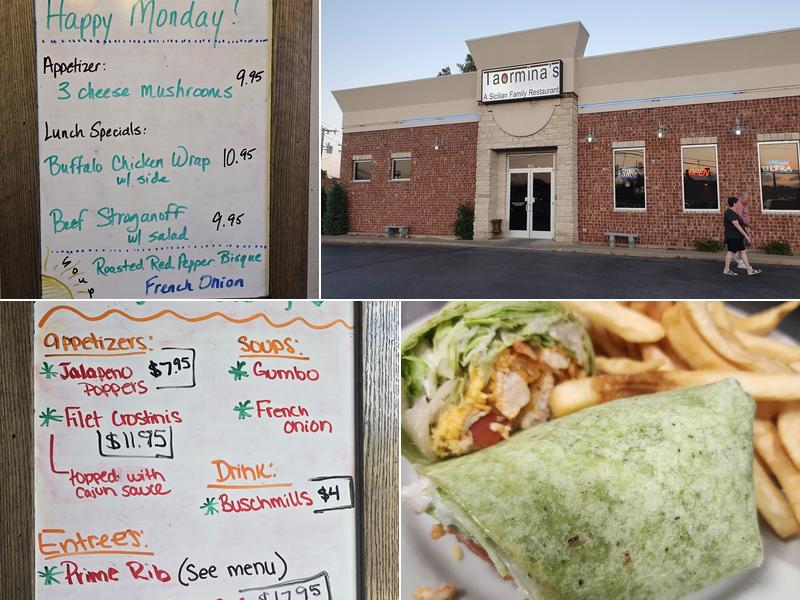 Happy Monday!
Appetizer:
3 cheese mushrooms 9.95
Lunch Specials:
Buffalo Chicken Wrap 10.95
w/ side
Beef Stroganoff 9.95
w/ salad
Soup
Roasted Red Pepper Bisque
French Onion
Taormina's
A Sicilian Family Restaurant
OPEN
ULTRA
appetizers:
Jalapeno $7.95
Poppers
Filet Crostinis
$11.95
topped with
cajun sauce
Soups:
Gumbo
French
onion
Drink:
Buschmills $4
Entree's:
Prime Rib (See menu)
$17.95